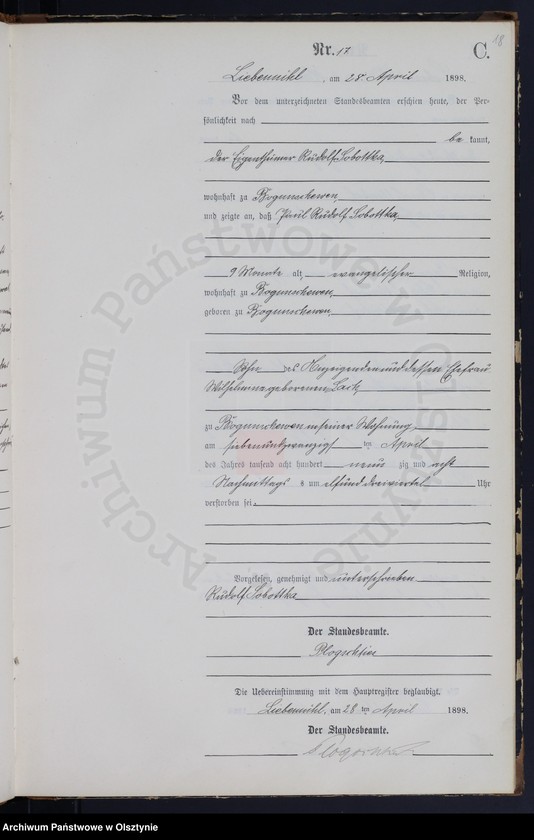 18
Nr. 17
C.
Liebemühl, am 28 April 1898.
Vor dem unterzeichneten Standesbeamten erschien heute, der Per-
sönlichkeit nach
be kannt,
der Eigenthümer Rudolf Sobottka,
wohnhaft zu Bogunschewen,
und zeigte an, daß Paul Rudolf Sobottka,
9 Monate alt, evangelischer Religion,
wohnhaft zu Bogunschewen,
geboren zu Bogunschewen,
Sohn des Anzeigenden und dessen Ehefrau
Wilhelmine geborenen Lack,
zu Bogunschewen in seiner Wohnung
am siebenundzwanzigsten April
des Jahres tausend acht hundert neun zig und acht
Nachmittags um elf und dreiviertel Uhr
verstorben sei.
Vorgelesen, genehmigt und unterschrieben
Rudolf Sobottka
Der Standesbeamte.
Die Uebereinstimmung mit dem Hauptregister beglaubigt.
Liebemühl, am 28 ten April 1898.
Der Standesbeamte.
Archiwum Państwowe w Olsztynie
Archiwum Państwowe w Olsztynie